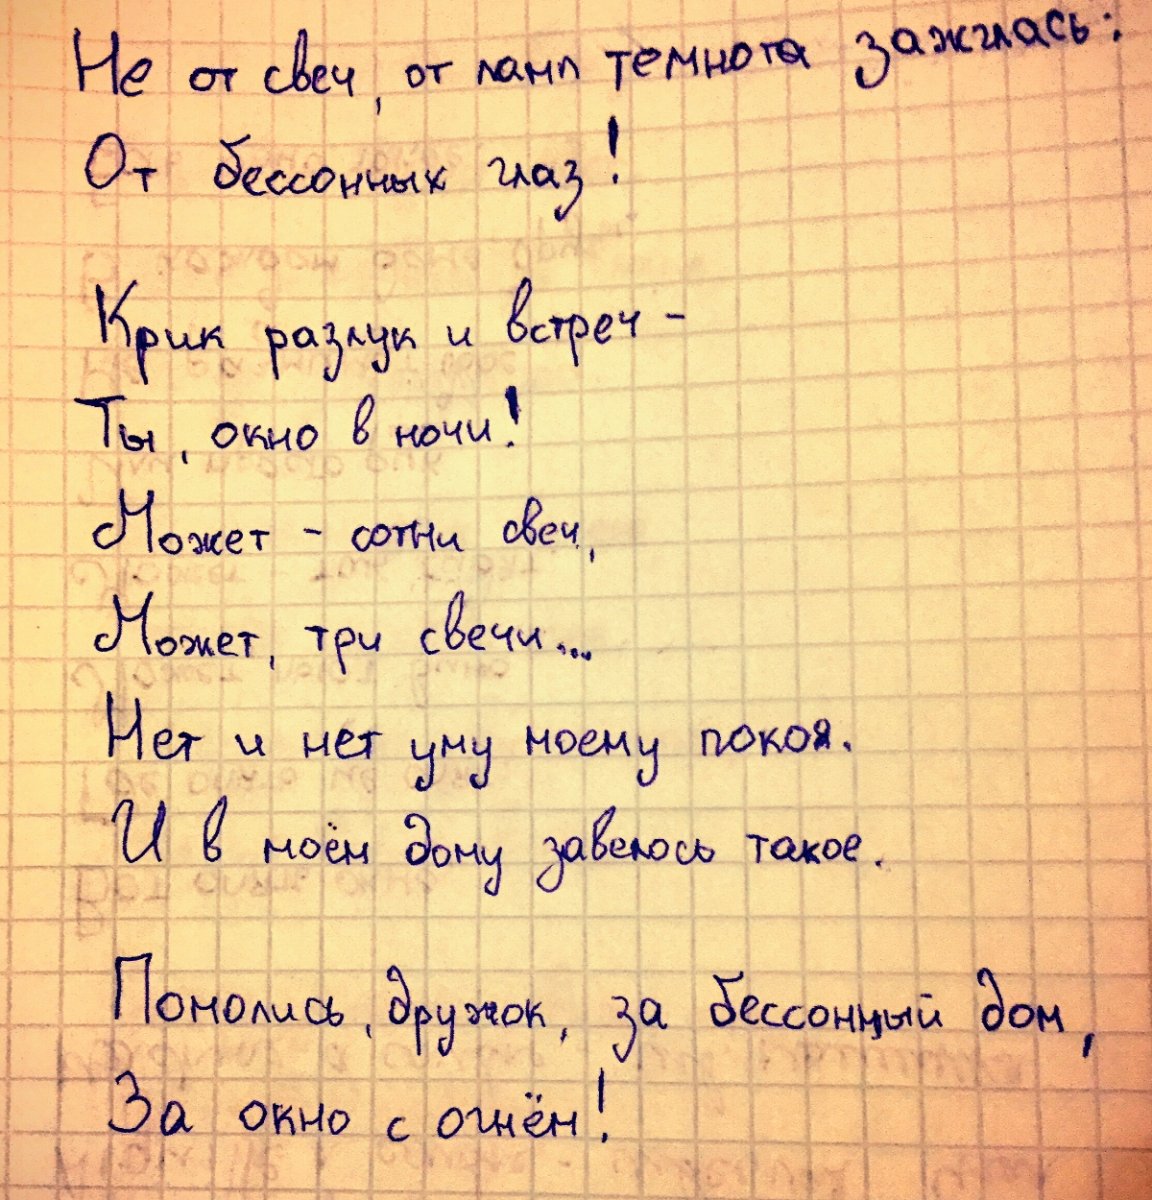 Не от свеч, от ламп темнота зажглась:
От бессонных глаз!
Крик разлук и встреч -
Ты, окно в ночи!
Может - сотни свеч,
Может, три свечи...
Нет и нет уму моему покоя.
И в моём дому завелось такое.
Помолись, дружок, за бессонный дом,
За окно с огнём!